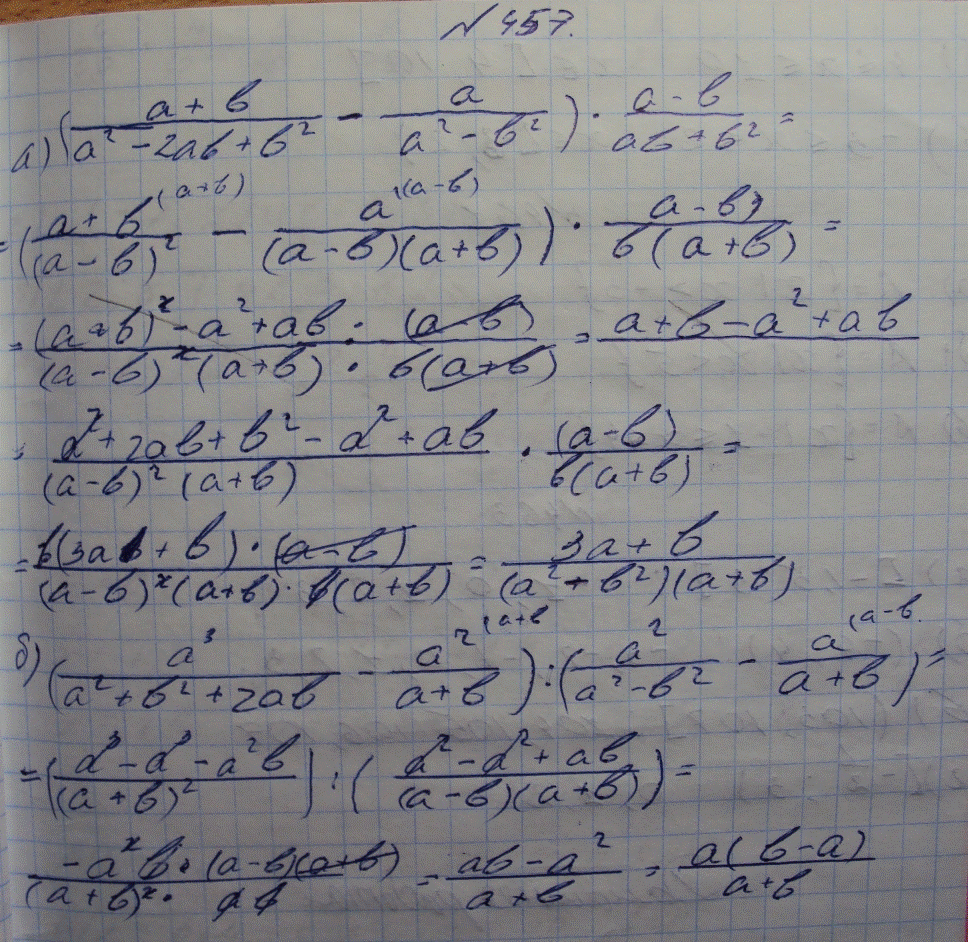 № 457.
а) ((a + b)/(a² - 2ab + b²) - a/(a² - b²)) · (a - b)/(ab + b²) =
= ((a + b)^(a+b)/(a - b)² - a^(a-b)/((a - b)(a + b))) · (a - b)/(b(a + b)) =
= ((a + b)² - a² + ab · (a - b))/((a - b)²(a + b) · b(a + b)) = (a + b - a² + ab)/
= (a² + 2ab + b² - a² + ab)/((a - b)² (a + b)) · (a - b)/(b(a + b)) =
= (b(3a + b) · (a - b))/((a - b)²(a + b) · b(a + b)) = (3a + b)/((a² + b²)(a + b))
б) (a³/(a² + b² + 2ab) - a²^(a+b)/(a + b)) : (a²/(a² - b²) - a^(a-b)/(a + b)) =
= ((a³ - a³ - a²b)/((a + b)²)) : ((a² - a² + ab)/((a - b)(a + b))) =
(-a²b · (a - b)(a + b))/((a + b)² · ab) = (ab - a²)/(a + b) = (a(b - a))/(a + b)